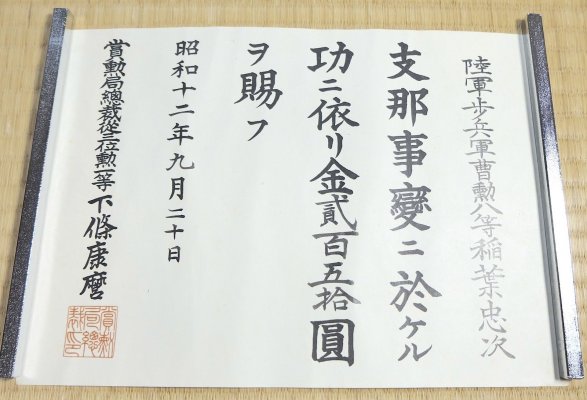 陸軍歩兵軍曹勲八等稲葉忠次
支那事變ニ於ケル
功ニ依リ金貳百五拾圓
ヲ賜フ
昭和十二年九月二十日
賞勲局總裁從三位勲一等下條康麿
賞勲局總裁印